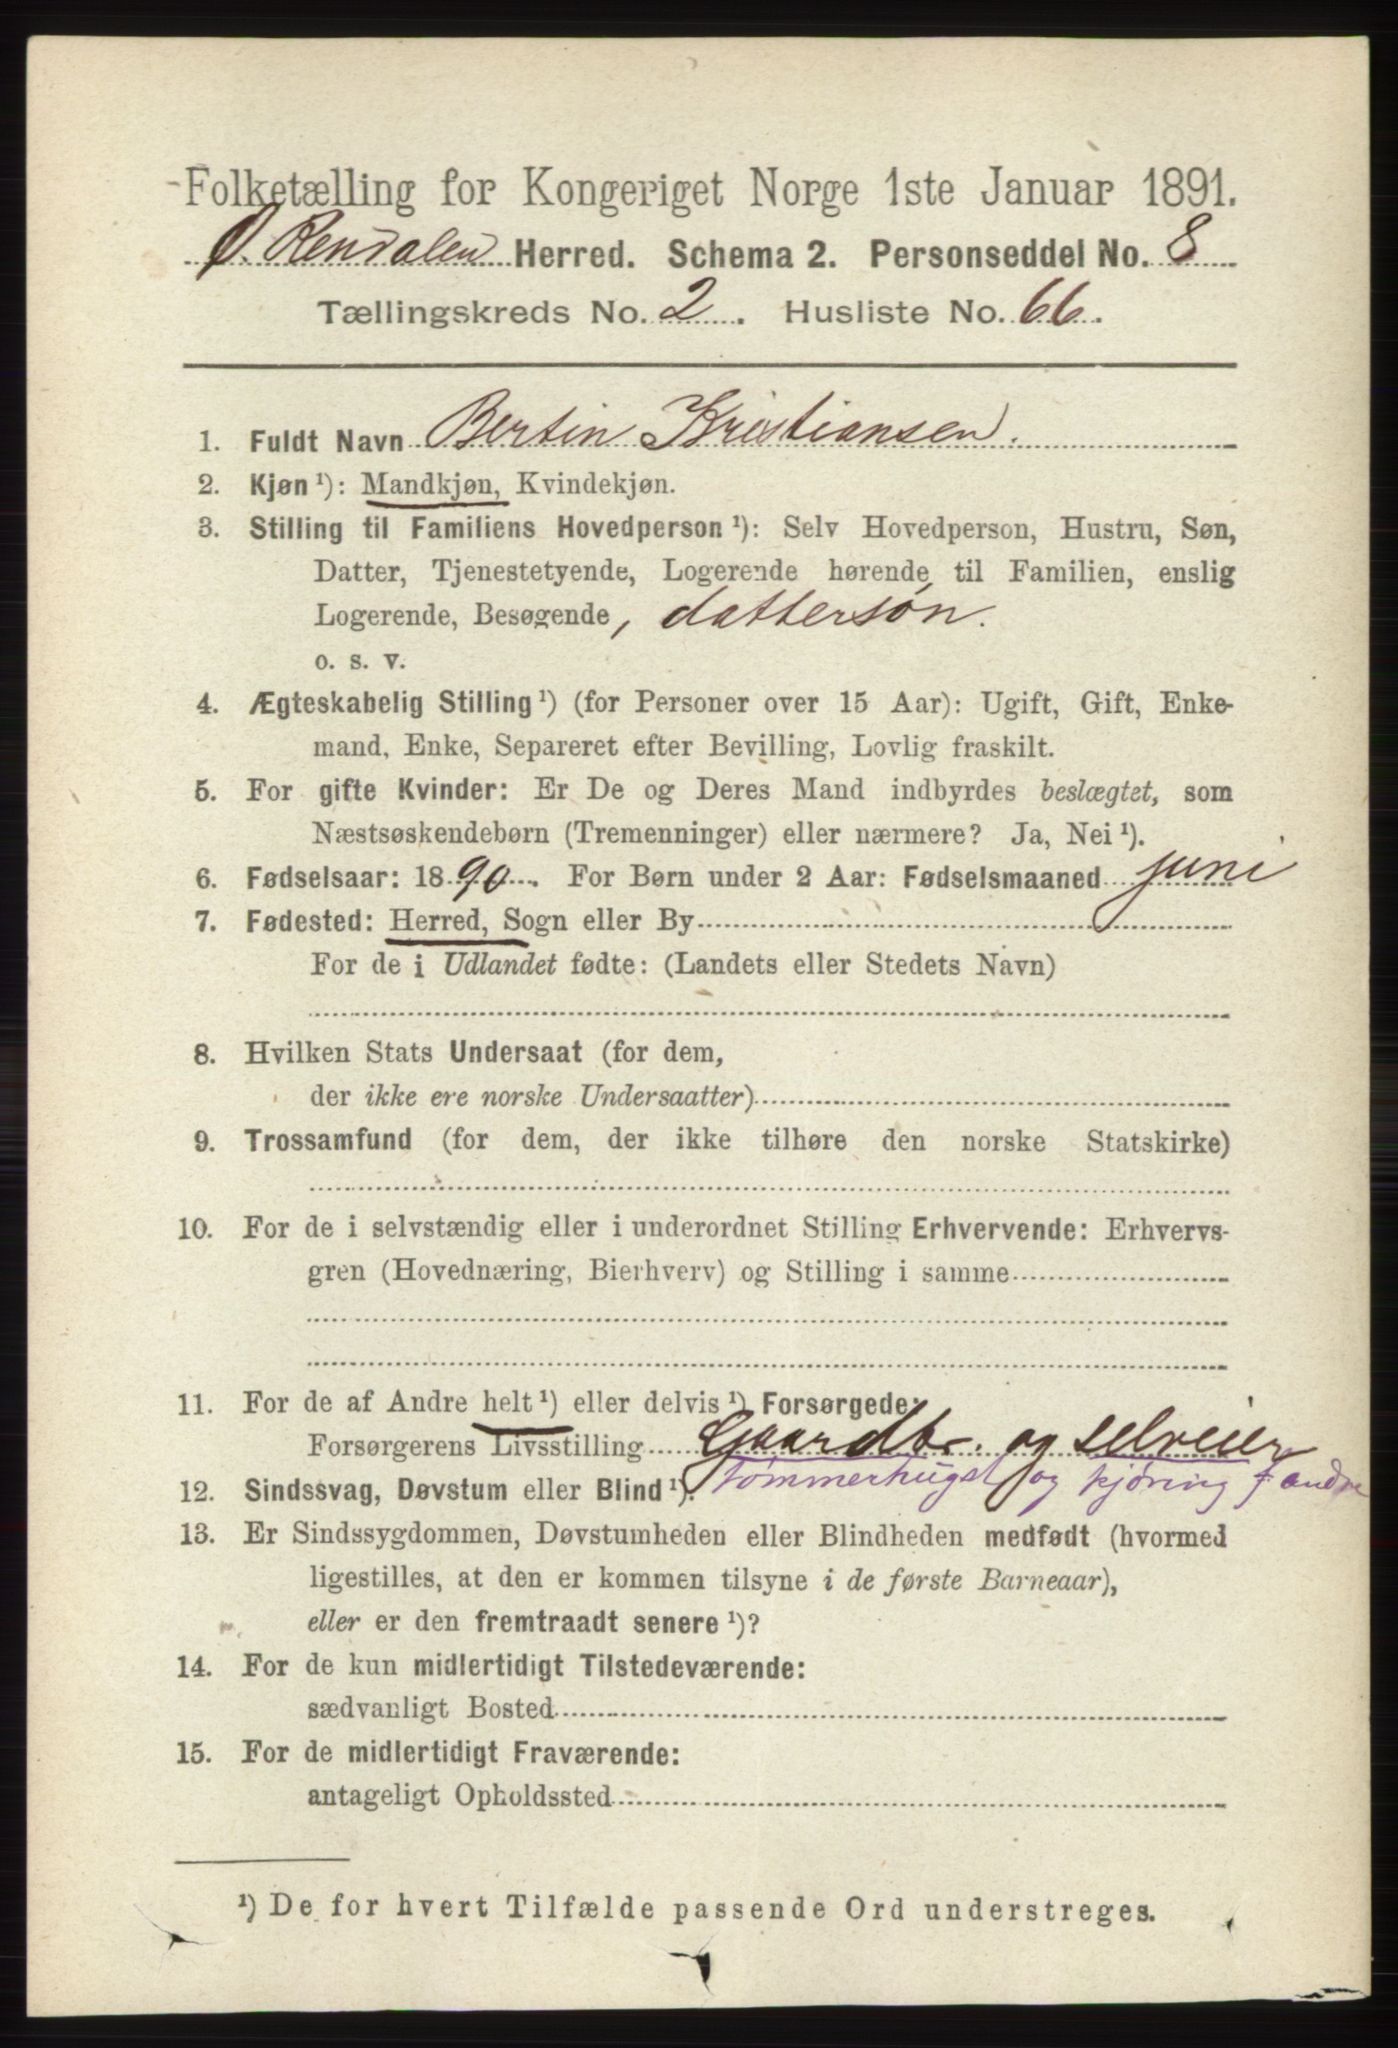 Folketælling for Kongeriget Norge 1ste Januar 1891.
Ø. Rendalen Herred. Schema 2. Personseddel No. 8
Tællingskreds No. 2. Husliste No. 66.
1. Fuldt Navn Bertin Kristiansen.
2. Kjøn ¹): Mandkjøn, Kvindekjøn.
3. Stilling til Familiens Hovedperson ¹): Selv Hovedperson, Hustru, Søn,
Datter, Tjenestetyende, Logerende hørende til Familien, enslig
Logerende, Besøgende, dattersøn.
o. s. v.
4. Ægteskabelig Stilling ¹) (for Personer over 15 Aar): Ugift, Gift, Enke-
mand, Enke, Separeret efter Bevilling, Lovlig fraskilt.
5. For gifte Kvinder: Er De og Deres Mand indbyrdes beslægtet, som
Næstsøskendebørn (Tremenninger) eller nærmere? Ja, Nei ¹).
6. Fødselsaar: 1890. For Børn under 2 Aar: Fødselsmaaned juni
7. Fødested: Herred, Sogn eller By
For de i Udlandet fødte: (Landets eller Stedets Navn)
8. Hvilken Stats Undersaat (for dem,
der ikke ere norske Undersaatter)
9. Trossamfund (for dem, der ikke tilhøre den norske Statskirke)
10. For de i selvstændig eller i underordnet Stilling Erhvervende: Erhvervs-
gren (Hovednæring, Bierhverv) og Stilling i samme
11. For de af Andre helt ¹) eller delvis ¹) Forsørgede:
Forsørgerens Livsstilling Gaardbr. og selveier
12. Sindssvag, Døvstum eller Blind ¹). tømmerhugst og kjøring f andre
13. Er Sindssygdommen, Døvstumheden eller Blindheden medfødt (hvormed
ligestilles, at den er kommen tilsyne i de første Barneaar),
eller er den fremtraadt senere ¹)?
14. For de kun midlertidigt Tilstedeværende:
sædvanligt Bosted
15. For de midlertidigt Fraværende:
antageligt Opholdssted
¹) De for hvert Tilfælde passende Ord understreges.